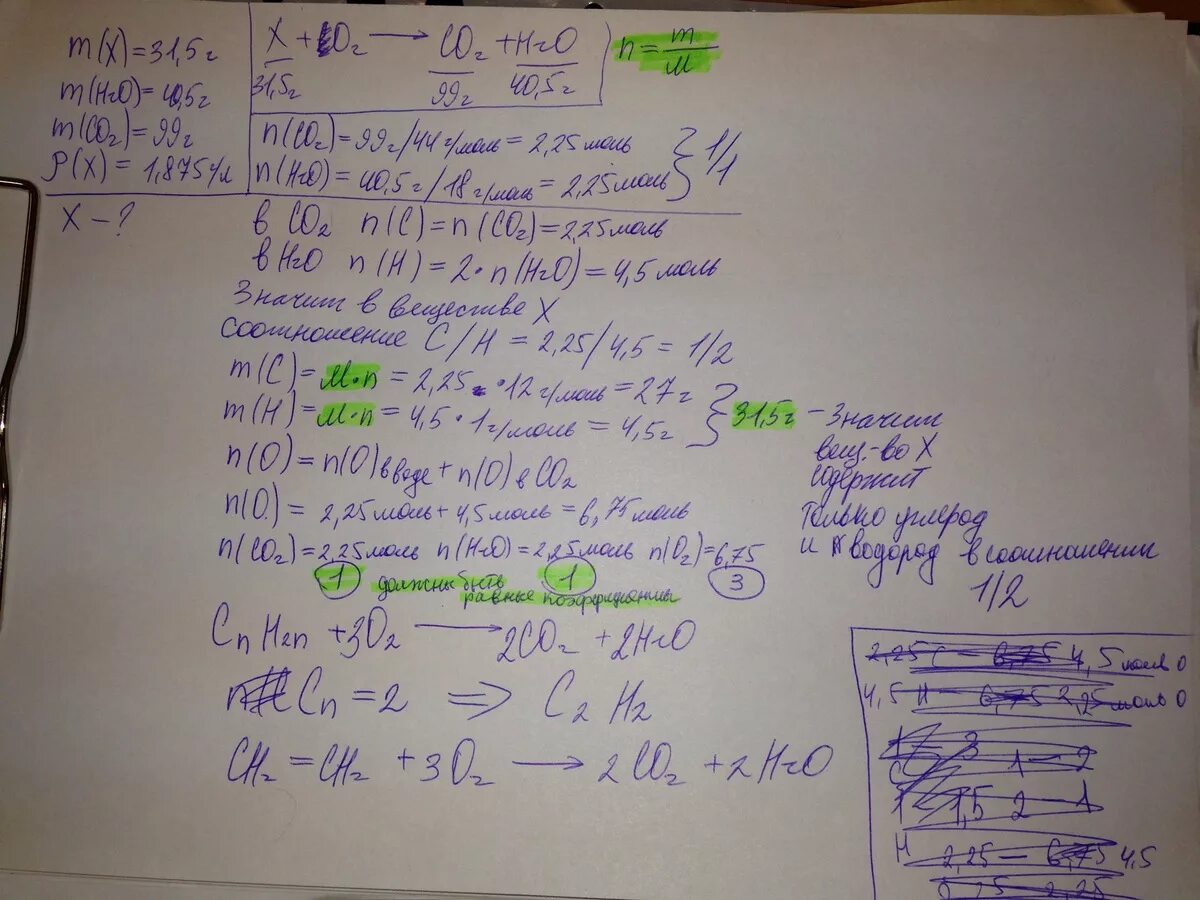 m(X)=31,5г
m(H₂O)=40,5г
m(CO₂)=99г
ρ(X)=1,875г/л
X – ?
X + O₂ → CO₂ + H₂O
31,5г 99г 40,5г
n = m/M
n(CO₂)=99г/44г/моль=2,25моль
n(H₂O)=40,5г/18г/моль=2,25моль } 1/1
в CO₂ n(C)=n(CO₂)=2,25моль
в H₂O n(H)=2·n(H₂O)=4,5моль
Значит в веществе X
соотношение C/H = 2,25/4,5 = 1/2
m(C)=M·n=2,25·12г/моль=27г
m(H)=M·n=4,5·1г/моль=4,5г } 31,5г – Значит
вещ-во X
содержит
только углерод
и водород в соотношении
1/2
n(O)=n(O)в воде+n(O)в CO₂
n(O)=2,25моль+4,5моль=6,75моль
n(CO₂)=2,25моль n(H₂O)=2,25моль n(O₂)=6,75
1 должны быть 1 3
равные коэффициенты
CnH2n + 3O₂ → 2CO₂ + 2H₂O
Cn = 2 ⇒ C₂H₂
CH₂=CH₂ + 3O₂ → 2CO₂ + 2H₂O
2,25 C – 6,75 4,5 моль O
4,5 H – 6,75 2,25 моль O
1 – 2
1,5 2 – 1
H 2,25 – 6,75 4,5